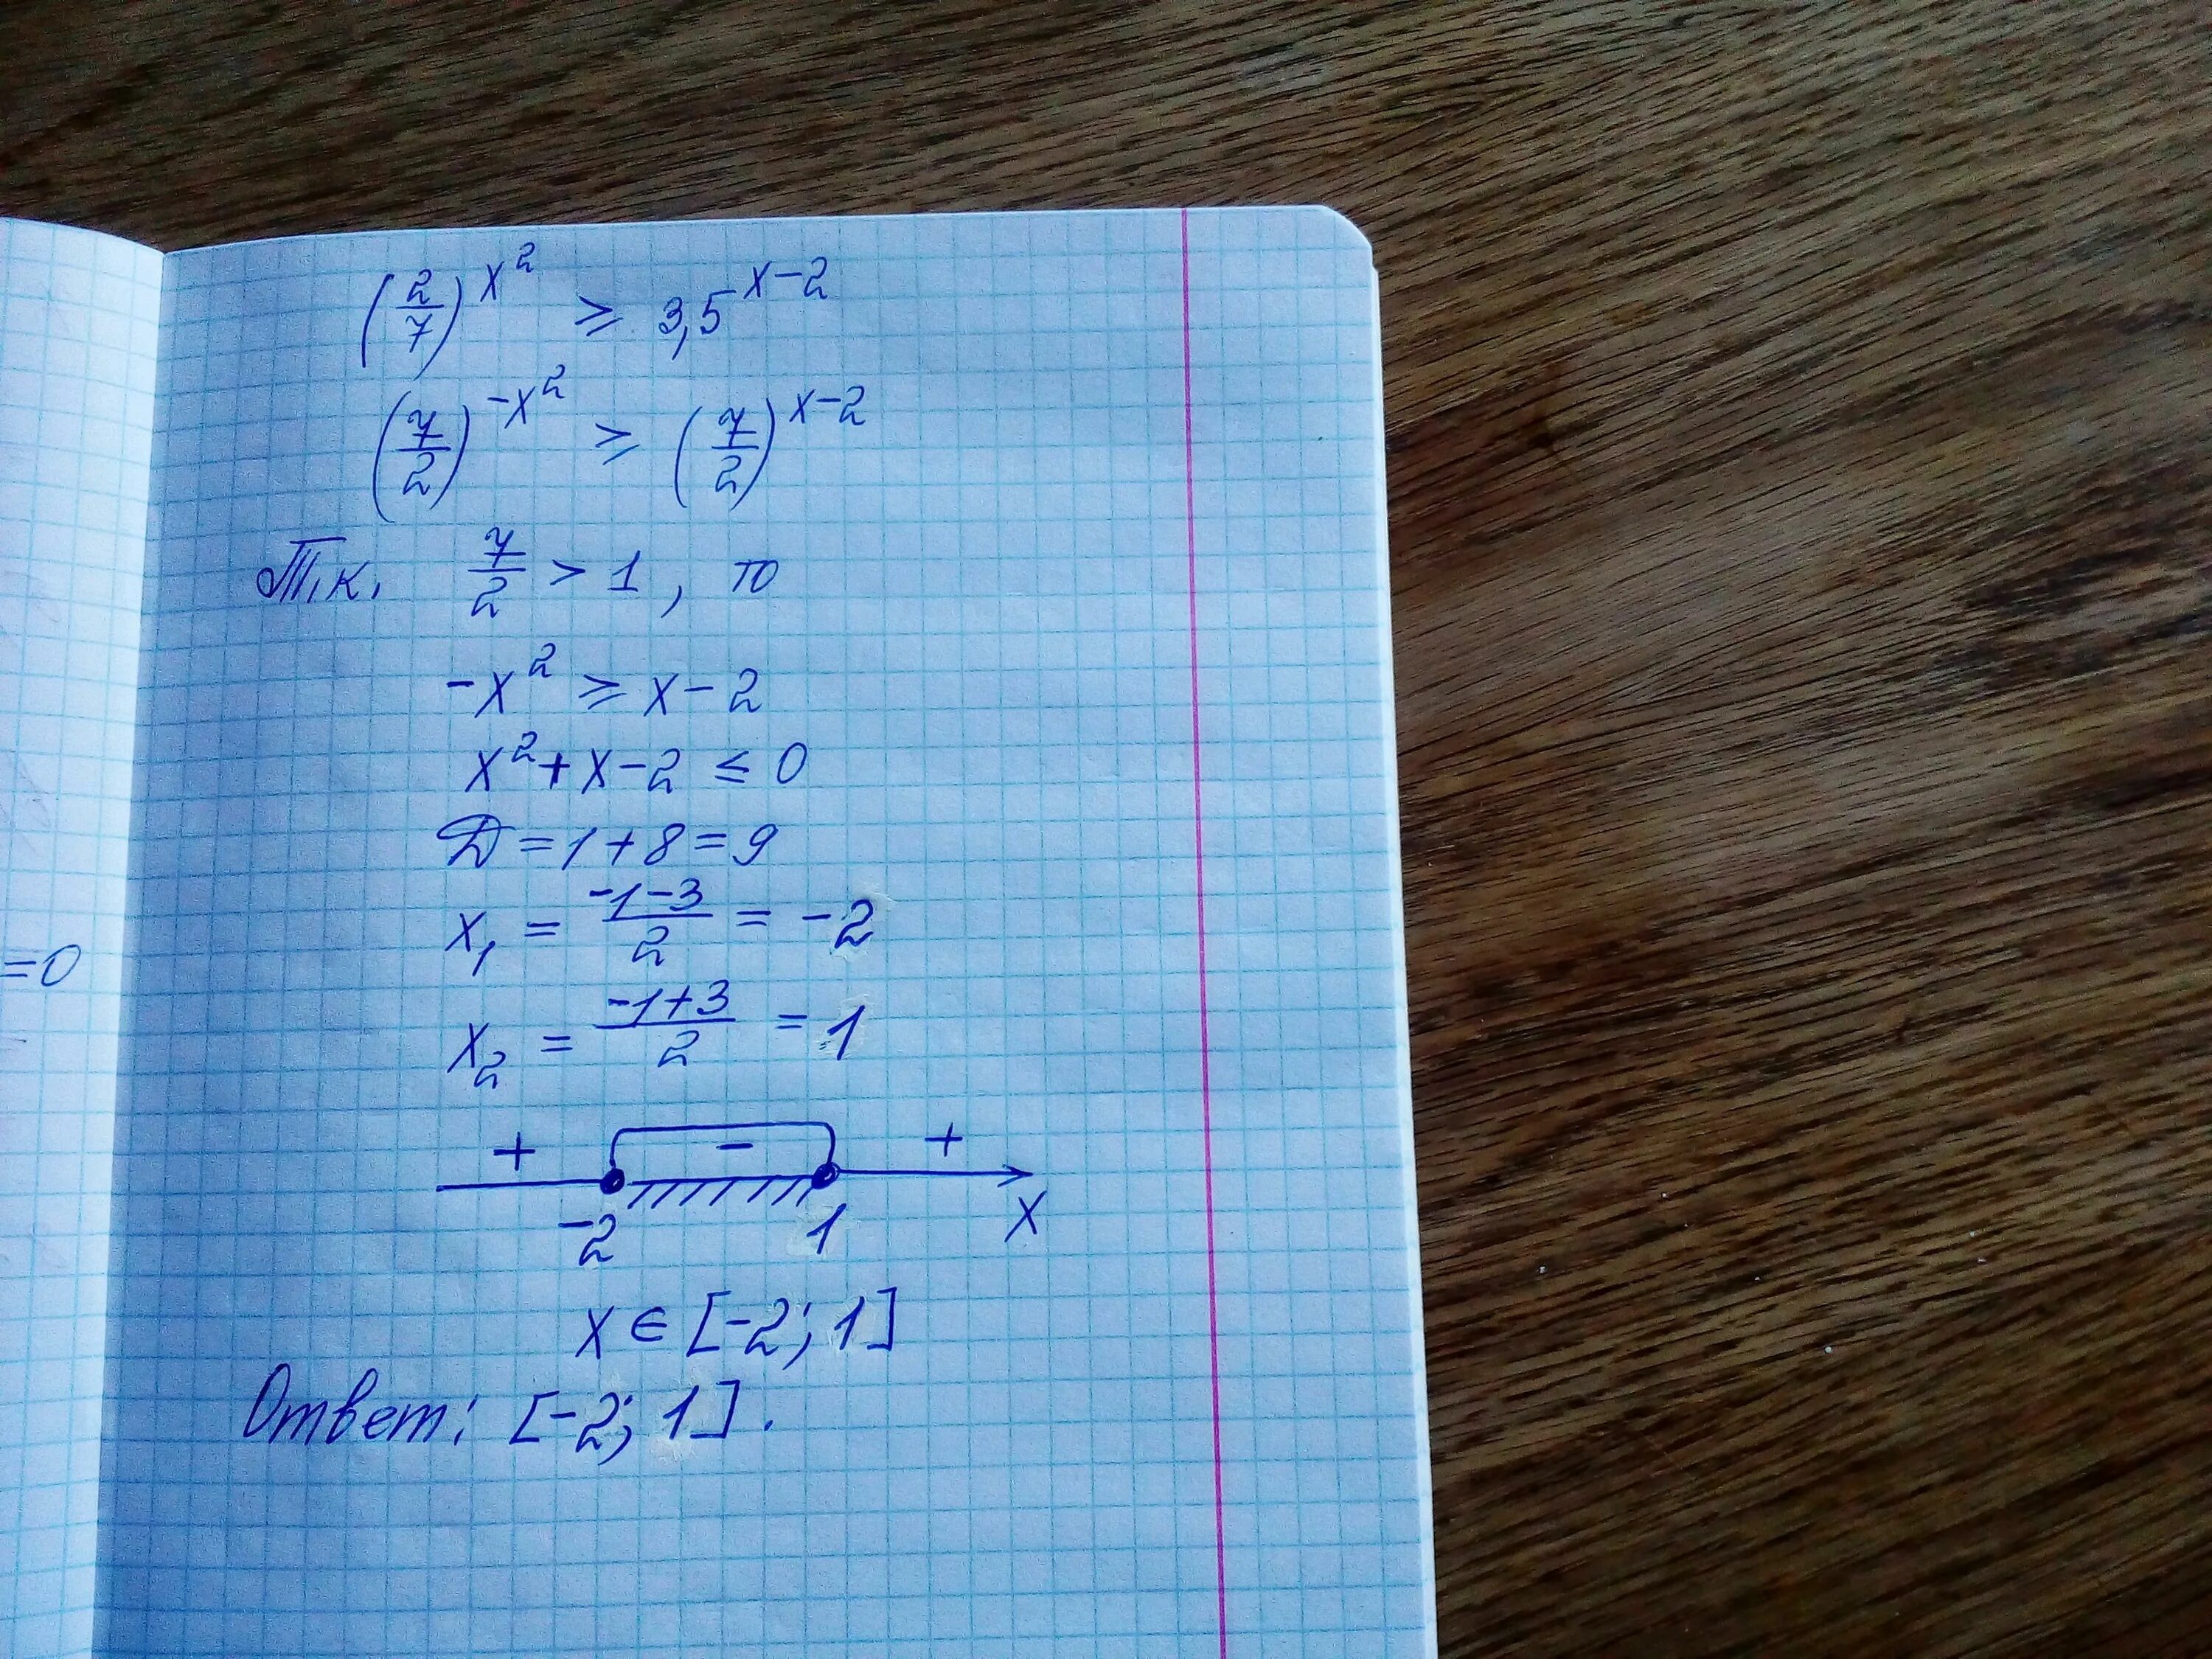 (2/7)^x² ≥ 3,5^x-2
(7/2)^-x² ≥ (7/2)^x-2
Т.к. 7/2 > 1, то
-x² ≥ x-2
x²+x-2 ≤ 0
D=1+8=9
x₁ = -1-3/2 = -2
x₂ = -1+3/2 = 1
+ - +
-2 1 x
x ∈ [-2; 1]
Ответ: [-2; 1].
=0